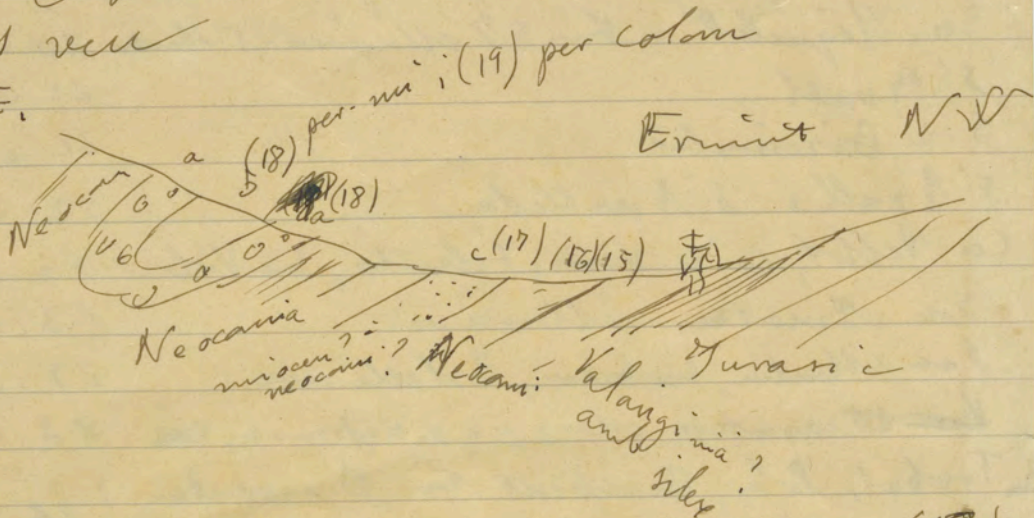 veu
(18) per-mi i (19) per Colom
Ermita NW
a
b
(18)
a
Neocomià
c (17) (16) (15)
Neocomià
miocen?
neocomi?
Neocomi.
Valanginià?
amb
silex
Jurasic